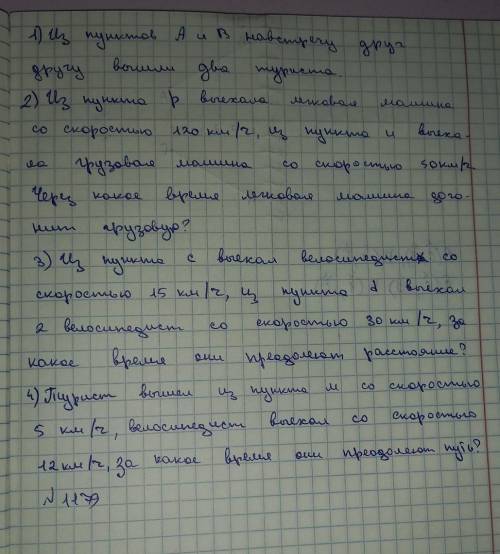 1) Из пунктов А и В навстречу друг
другу вышли два туриста.
2) Из пункта p выехала легковая машина
со скоростью 120 км/ч, из пункта и выеха-
ла грузовая машина со скоростью 50км/ч.
Через какое время легковая машина дого-
нит грузовую?
3) Из пункта с выехал велосипедист со
скоростью 15 км/ч, из пункта d выехал
2 велосипедист со скоростью 30 км/ч, за
какое время они преодолеют расстояние?
4) Турист вышел из пункта м со скоростью
5 км/ч, велосипедист выехал со скоростью
12 км/ч, за какое время они преодолеют путь?
№1179